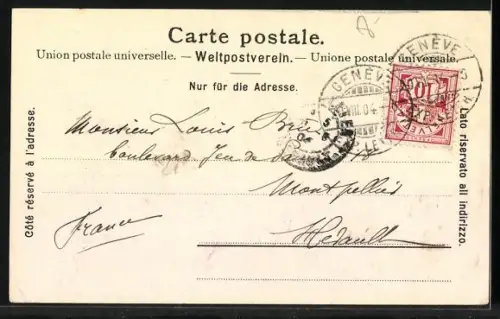 Carte postale.
Union postale universelle. — Weltpostverein. — Unione postale universale.
Nur für die Adresse.
Côté réservé à l'adresse.
Lato riservato all indirizzo.
GENÈVE
GENÈVE
VIII.04
10
Monsieur Louis
boulevard Jeu de
Montpellier
Hérault
France